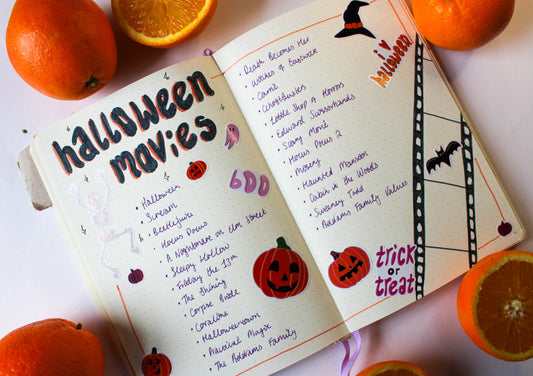 halloween
movies
BOO
• Halloween
• Scream
• Beetlejuice
• Hocus Pocus
• A Nightmare on Elm Street
• Sleepy Hollow
• Friday the 13th
• The Shining
• Corpse Bride
• Coraline
• Halloweentown
• Practical Magic
• The Addams Family
• Death Becomes Her
• Witches of Eastwick
• Carrie
• Ghostbusters
• Little Shop of Horrors
• Edward Scissorhands
• Scary Movie
• Hocus Pocus 2
• Misery
• Haunted Mansion
• Cabin in the Woods
• Sweeney Todd
• Addams Family Values
i ♥
halloween
trick
or
treat